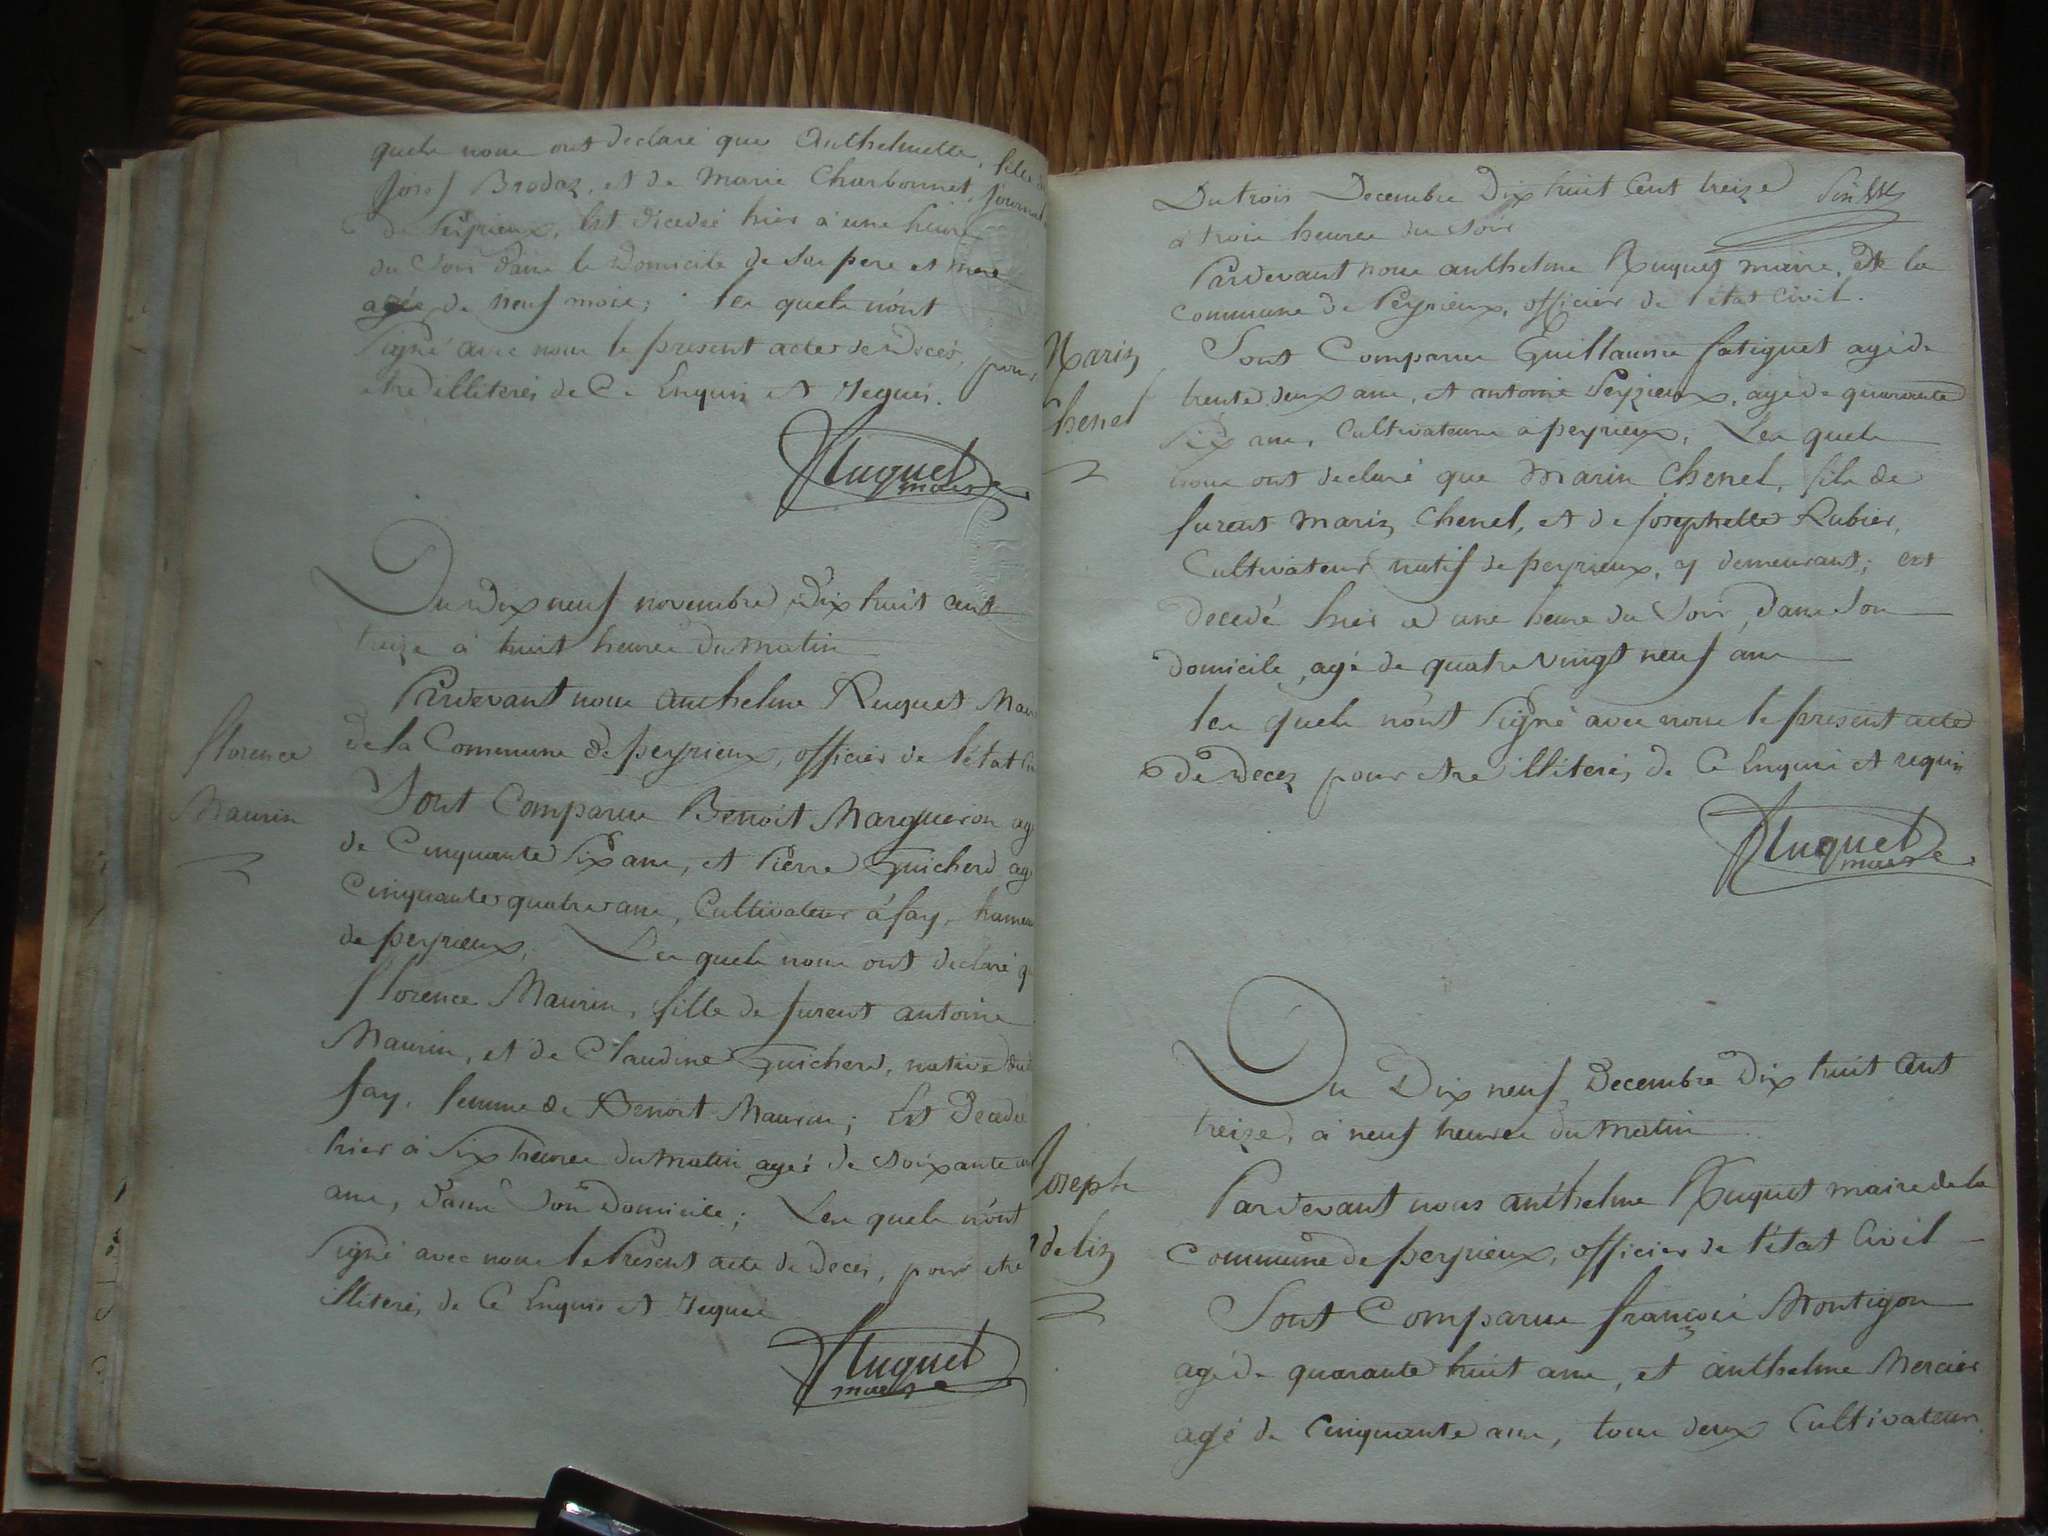 quels nous ont declaré que Anthelmette, fille de
Josef Brodaz, et de Marie Charbonnet, journal
de Peyrieux, Est decedée hier à une heure
du Soir dans le Domicile de Son pere et mere
agée de neuf mois; les quels n'ont
Signé avec nous le present acte de Decés, pour
etre illiterés de Ce Enquis et Requis.
Huguet
maire
Du Dix neuf novembre Dix huit cent
treize à huit heures du Matin
Pardevant nous anthelme Huguet Mai
de la Commune de peyrieux, officier de l'état Ci
Florence
Maurin
Sont Comparus Benoit Margueron ag
de Cinquante Six ans, et Pierre Guicherd ag
Cinquante quatre ans, Cultivateur à fay, hameau
de peyrieux; Les quels nous ont declaré q
florence Maurin, fille de furent antoine
Maurin, et de Claudine Guicherd, native du
fay, femme de Benoit Maurin; Est Decedée
hier à Six heures du Matin agée de Soixante
ans, dans Son Domicile; Les quels n'ont
Signé avec nous le Present acte de Decés, pour etre
illiterés, de Ce Enquis et Requis
Huguet
maire
Du trois Decembre Dix huit Cent treize
à trois heures du Soir
Pardevant nous anthelme Huguet maire, de la
commune de Peyrieux, officier de l'état Civil.
Marin
Chenel
Sont Comparus Guillaume fatiguet agé de
trente deux ans, et antoine Peyrieux, agé de quarante
Six ans, Cultivateurs a peyrieux; Les quels
nous ont declaré que Marin Chenel, fils de
furent Marin Chenel, et de Josephette Rubier,
Cultivateur natif de peyrieux, y demeurant; est
decedé hier a une heure du Soir, dans Son
domicile, agé de quatre vingt neuf ans
les quels n'ont Signé avec nous le present acte
de Decez pour etre illiterés, de Ce Enquis et requis
Huguet
maire
Du Dix neuf Decembre Dix huit Cent
treize, à neuf heures du Matin
Joseph
Pardevant nous anthelme Huguet maire de la
commune de peyrieux, officier de l'état Civil
Sont Comparus françois Montigon
agé de quarante huit ans, et anthelme Mercier
agé de Cinquante ans, tous deux Cultivateurs